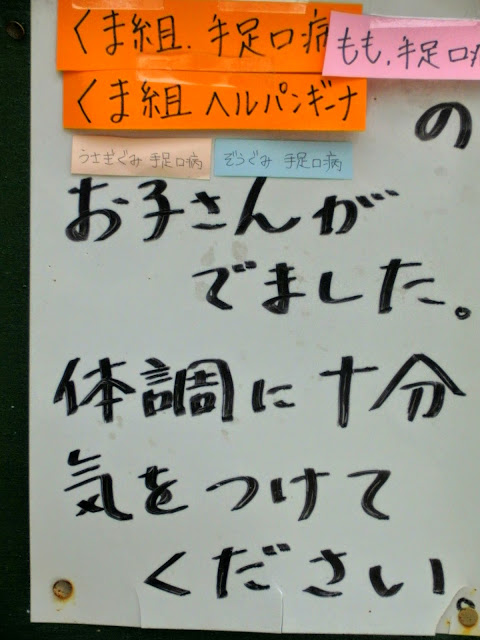 くま組.手足口病
もも,手足口病
くま組 ヘルパンギーナ
の
うさぎぐみ 手足口病
ぞうぐみ 手足口病
お子さんが
でました。
体調に十分
気をつけて
ください。